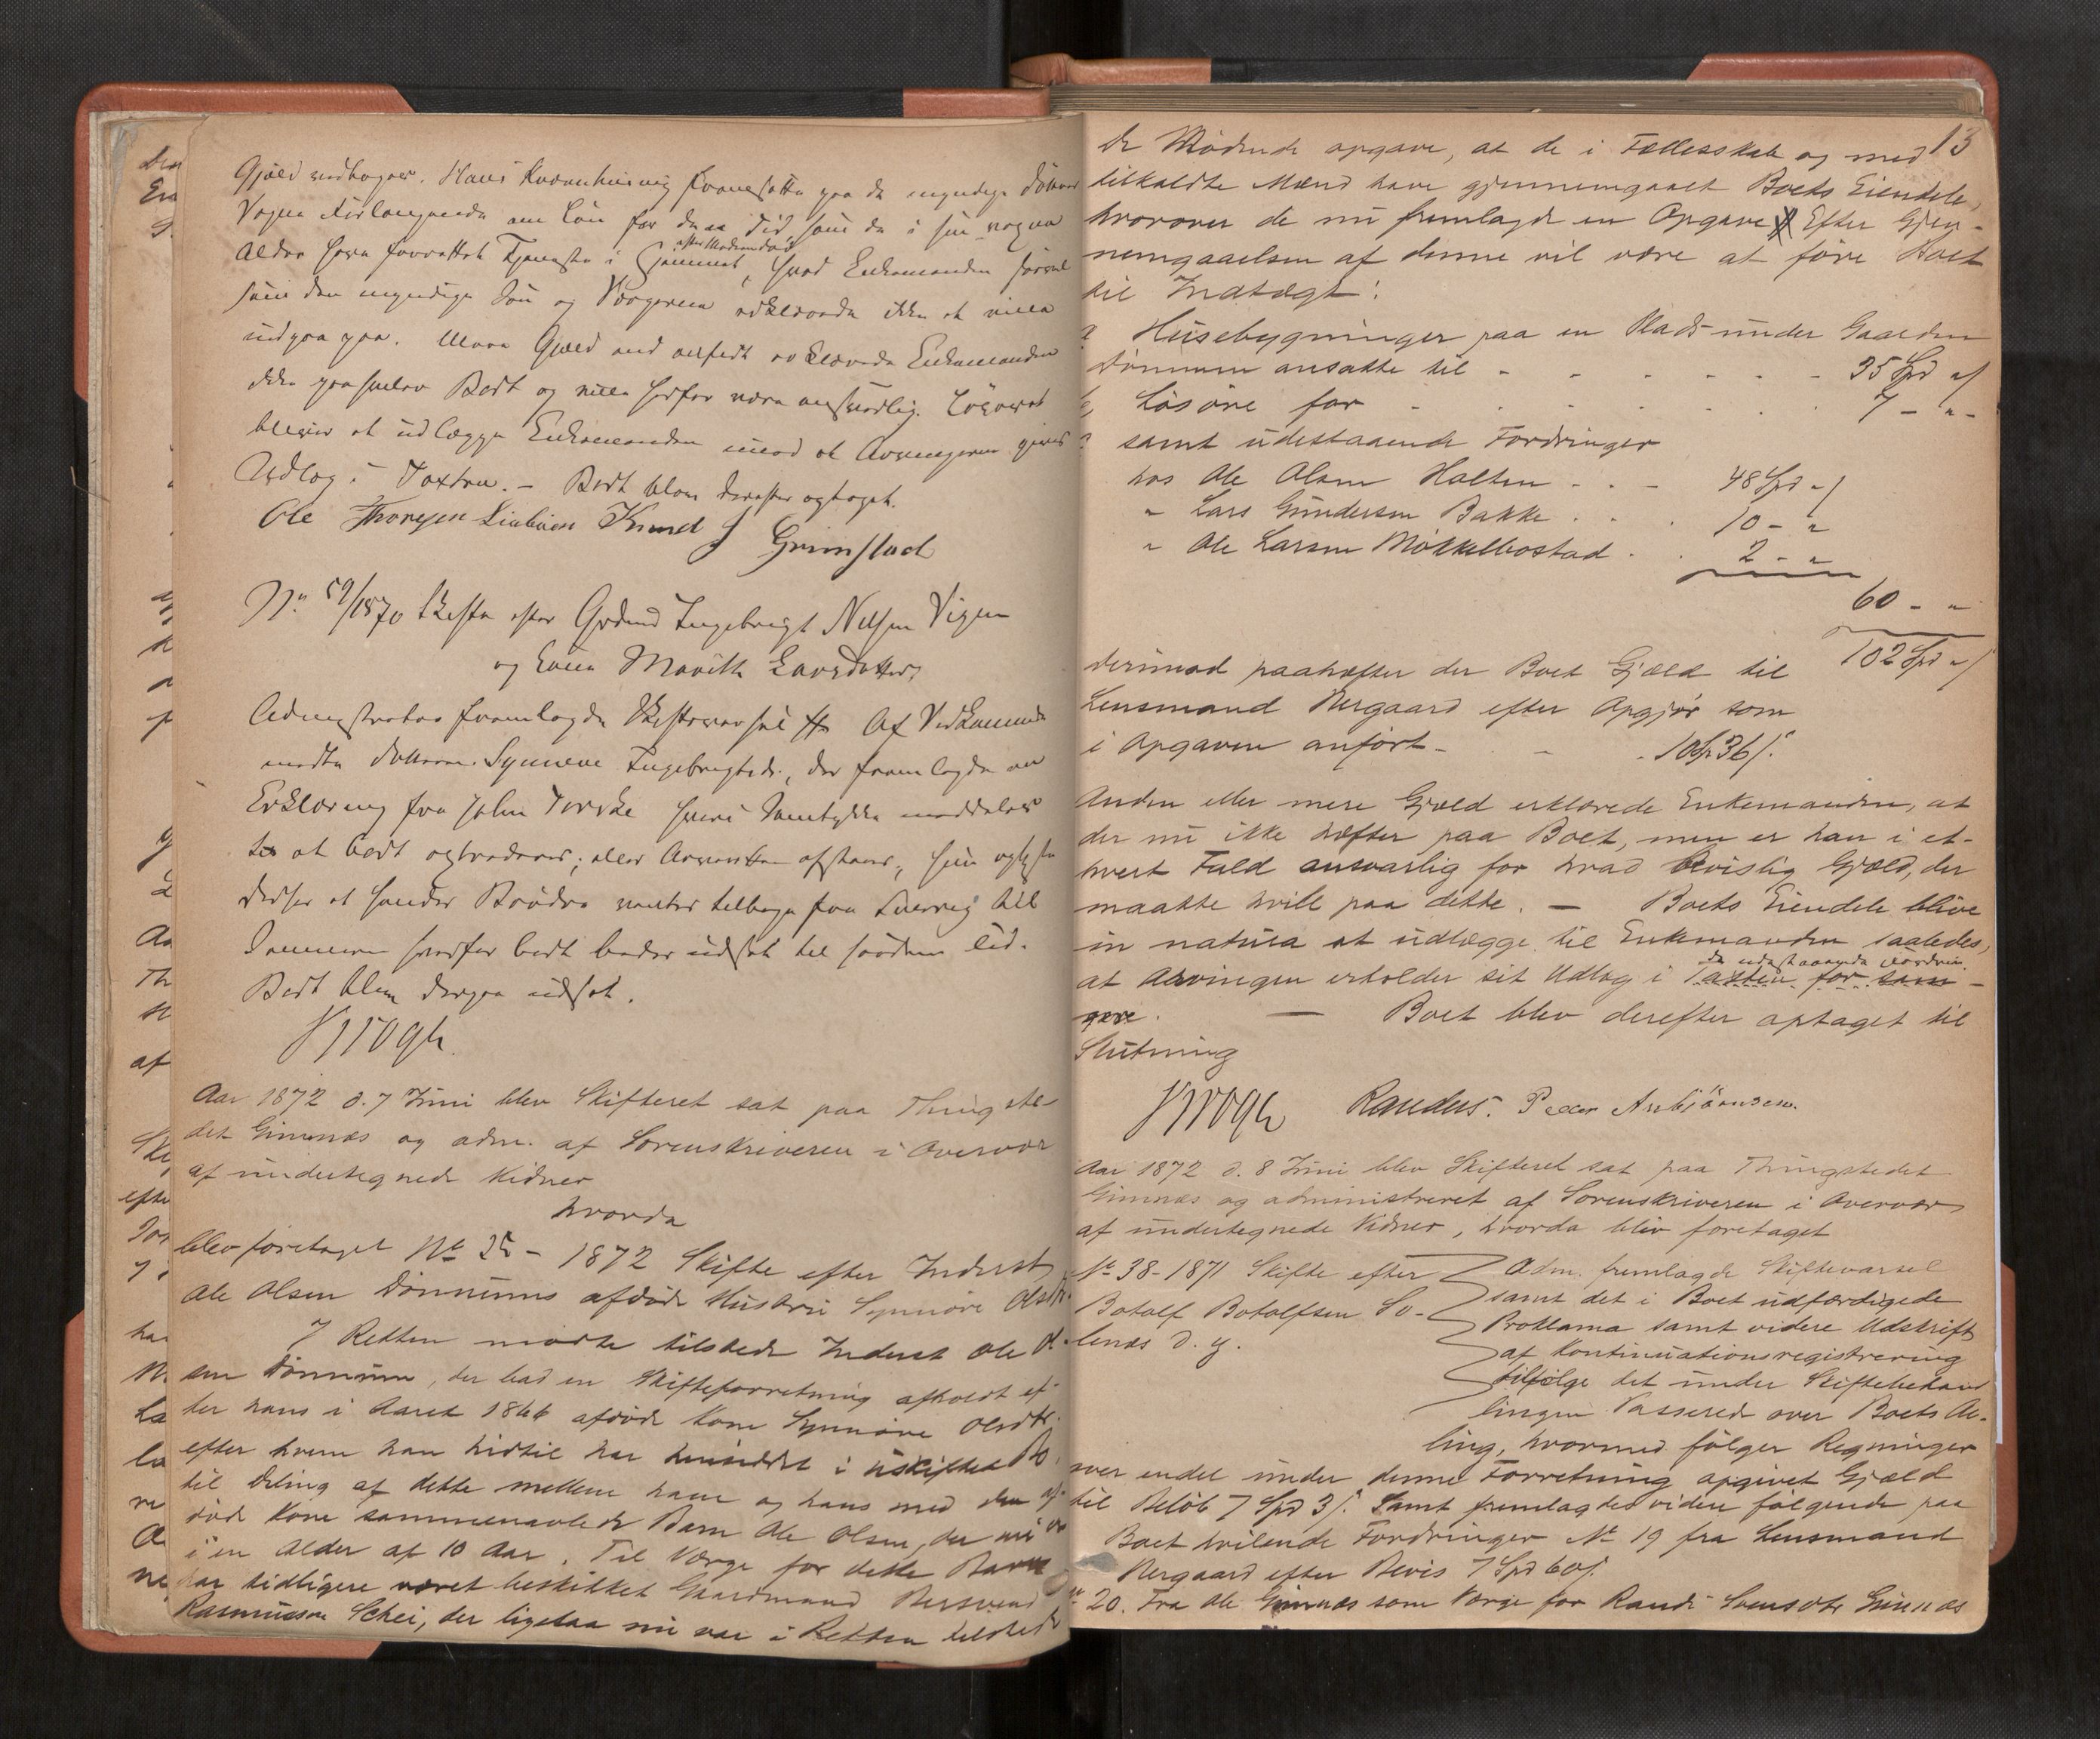 Gjæld vedtoges. Hans fremsatte paa de myndige Døttres
Vegne Forlangende om Løn for den Tid, som de i sin voxne
Alder have forrettet Tjeneste i Hjemmet, efter Moderens Død hvad Enkemanden
som den myndige Søn og Værgerne erklærede ikke at ville
indgaa paa. Mere Gjæld end anført erklærede Enkemanden
ikke paahviler Boet og ville herfor være ansvarlig. Løsøret
bliver at udlægge Enkemanden imod at Arvingerne gives
Udlæg i Taxten. – Boet blev derefter optaget.
Ole Thoresen Knud J Grimstad
No 59/1870 Skifte efter Ingebrigt Vigen
og Marith Larsdatter
Administrator fremlagde Skiftevarsel Af Vedkommende
mødte Datteren Synneve Ingebrigtsdr., der fremlagde en
Erklæring fra John hvori Samtykke meddeles
til at Boet
at hendes Brødre ventes tilbage fra Sverrig til
Sommeren hvorfor Boet udsat til saadan Tid.
Boet blev derpaa udsat.
Krogh
Aar 1872 d. 7 Juni blev Skifteret sat paa Thingste-
det Gimnæs og adm. af Sorenskriveren i Overvær
af undertegnede Vidner
hvorda
blev foretaget No 25 – 1872 Skifte efter Inderst
Ole Olsen Dønnums afdøde Hustru Synnøve Olsdtr.
I Retten mødte tilstede Inderst Ole Ol-
sen Dønnum, der bad en Skifteforretning afholdt ef-
ter hans i Aaret 1866 afdøde Kone Synnøve Olsdtr.
efter hvem han hidtil har hensiddet i uskiftet Bo
til Deling af dette mellem ham og hans med den af-
døde Kone sammenavlede Barn Ole Olsen, der nu er
i en Alder af 10 Aar. Til Værge for dette Barn
har tidligere været beskikket Gaardmand Bersvend
Rasmussen Schei, der ligesaa nu var i Retten tilstede
13
De Mødende opgave, at de i Fællesskab og med
tilkaldte Mænd have gjennemgaaet Boets Eiendele,
hvorover de nu fremlagde en Opgave Efter Gjen-
nemgaaelsen af denne vil være at føre Boet
til Indtægt:
Husebygninger paa en Plads under Gaarden
Dønnum ansatte til - - - - - - 35 Spd "
Løsøre for - - - - - - 7 – " –
samt udestaaende Fordringer
hos Ole Olsen Holten - - - 48 Spd "
" Lars Gundersen Bakke . . . 10 – "
" Ole Larsen Mokkelbostad . . 2 – "
60 – "
102 Spd "
derimod paahæfter der Boet Gjæld til
Lensmand Nergaard efter Opgjør som
i Opgaven anført - - - 10 Sp 36 s.
Anden eller mere Gjæld erklærede Enkemanden, at
der nu ikke hæfter paa Boet, men er han i et-
hvert Fald ansvarlig for hvad bevislig Gjæld, der
maatte hvile paa dette. — Boets Eiendele blive
in natura at udlægge til Enkemanden saaledes,
de udestaaende Fordrin-
at Arvingen erholder sit Udlæg i Taxten for sam-
gere. — Boet blev derefter optaget til
Slutning
Krogh Randus. Peder Arnbjørnsen.
Aar 1872 d. 8 Juni blev Skifteret sat paa Thingstedet
Gimnæs og administreret af Sorenskriveren i Overvær
af undertegnede Vidner, hvorda blev foretaget
No 38-1871 Skifte efter
Botolf Botolfsen So-
lenæs d. y.
Adm. fremlagde Skiftevarsel
samt det i Boet udfærdigede
Proklama samt videre Udskrift
af Kontinuationsregistrering
tilfølge det under Skiftebehand
lingen Passerede over Boets De-
ling, hvormed følger Regninger
over endel under denne Forretning opgivet Gjæld
til Beløb 7 Spd 3 s. Samt fremlagdes videre følgende paa
Boet hvilende Fordringer No 19 fra Lensmand
Nergaard efter Bevis 7 Spd 60 s.
" 20. Fra Ole Gimnæs som Værge for Randi Svensdtr Gimnæs